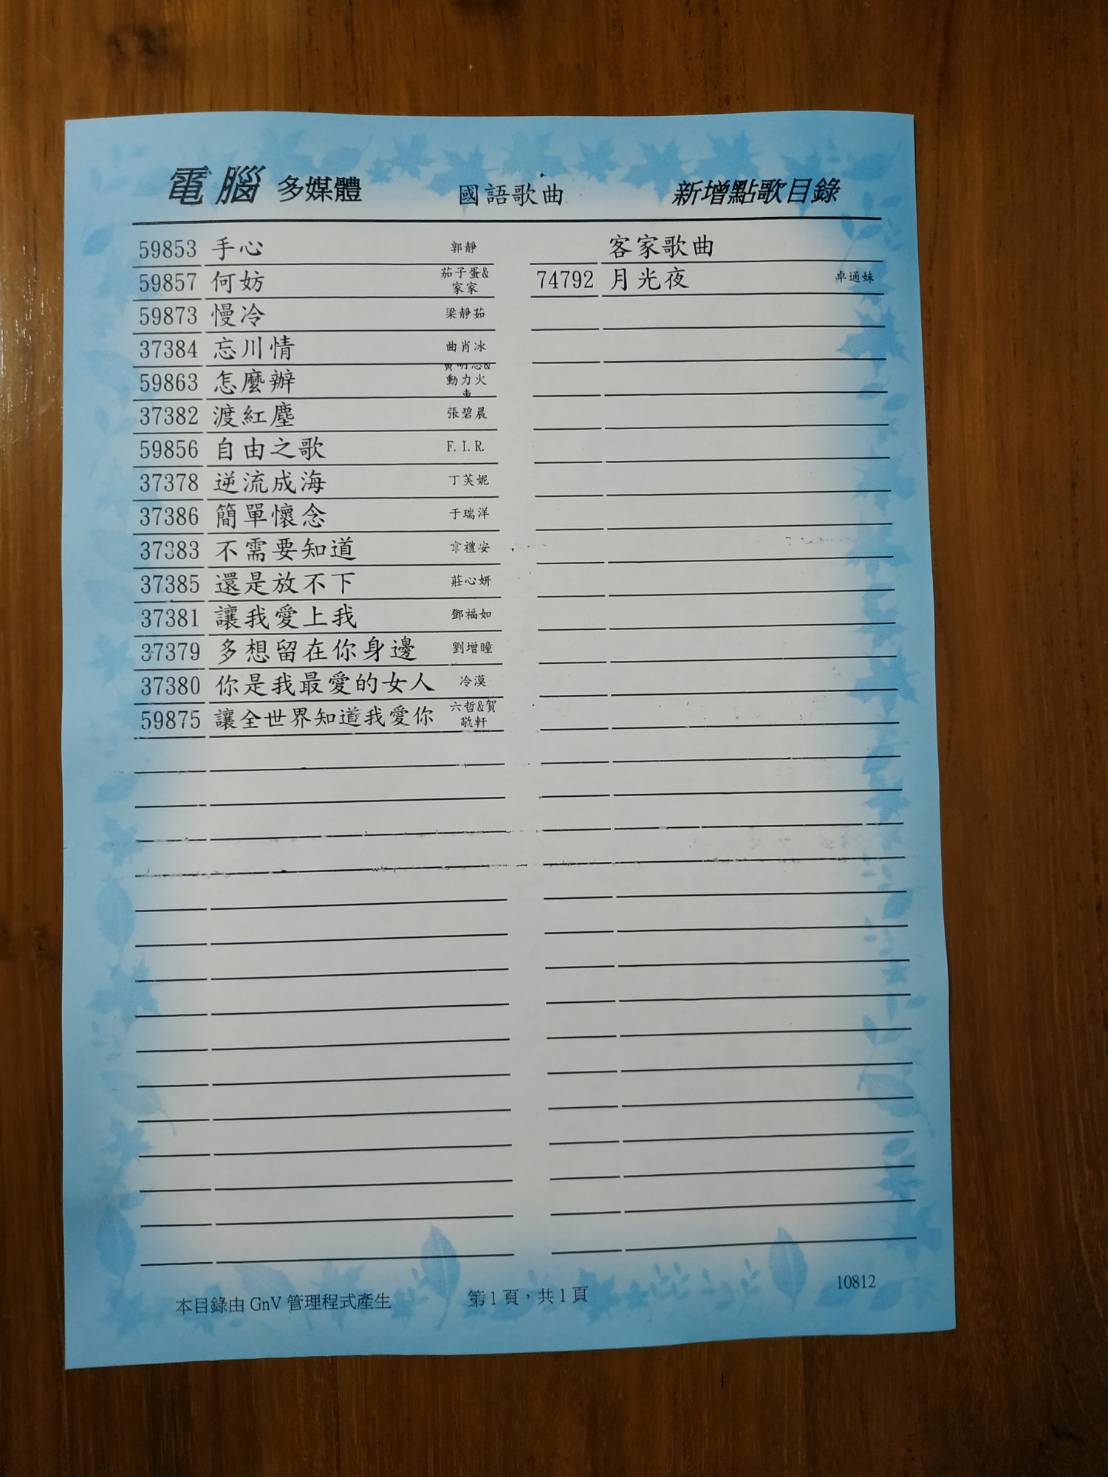 電腦 多媒體 國語歌曲 新增點歌目錄
59853 手心 郭靜
59857 何妨 茄子蛋&
家家
59873 慢冷 梁靜茹
37384 忘川情 曲肖冰
59863 怎麼辦
動力火
車
37382 渡紅塵 張碧晨
59856 自由之歌 F.I.R.
37378 逆流成海 丁芙妮
37386 簡單懷念 于瑞洋
37383 不需要知道 韋禮安
37385 還是放不下 莊心妍
37381 讓我愛上我 鄧福如
37379 多想留在你身邊 劉增瞳
37380 你是我最愛的女人 冷漠
59875 讓全世界知道我愛你 六哲&賀
敬軒
客家歌曲
74792 月光夜 卓通妹
本目錄由 GnV 管理程式產生 第1頁,共1頁 10812